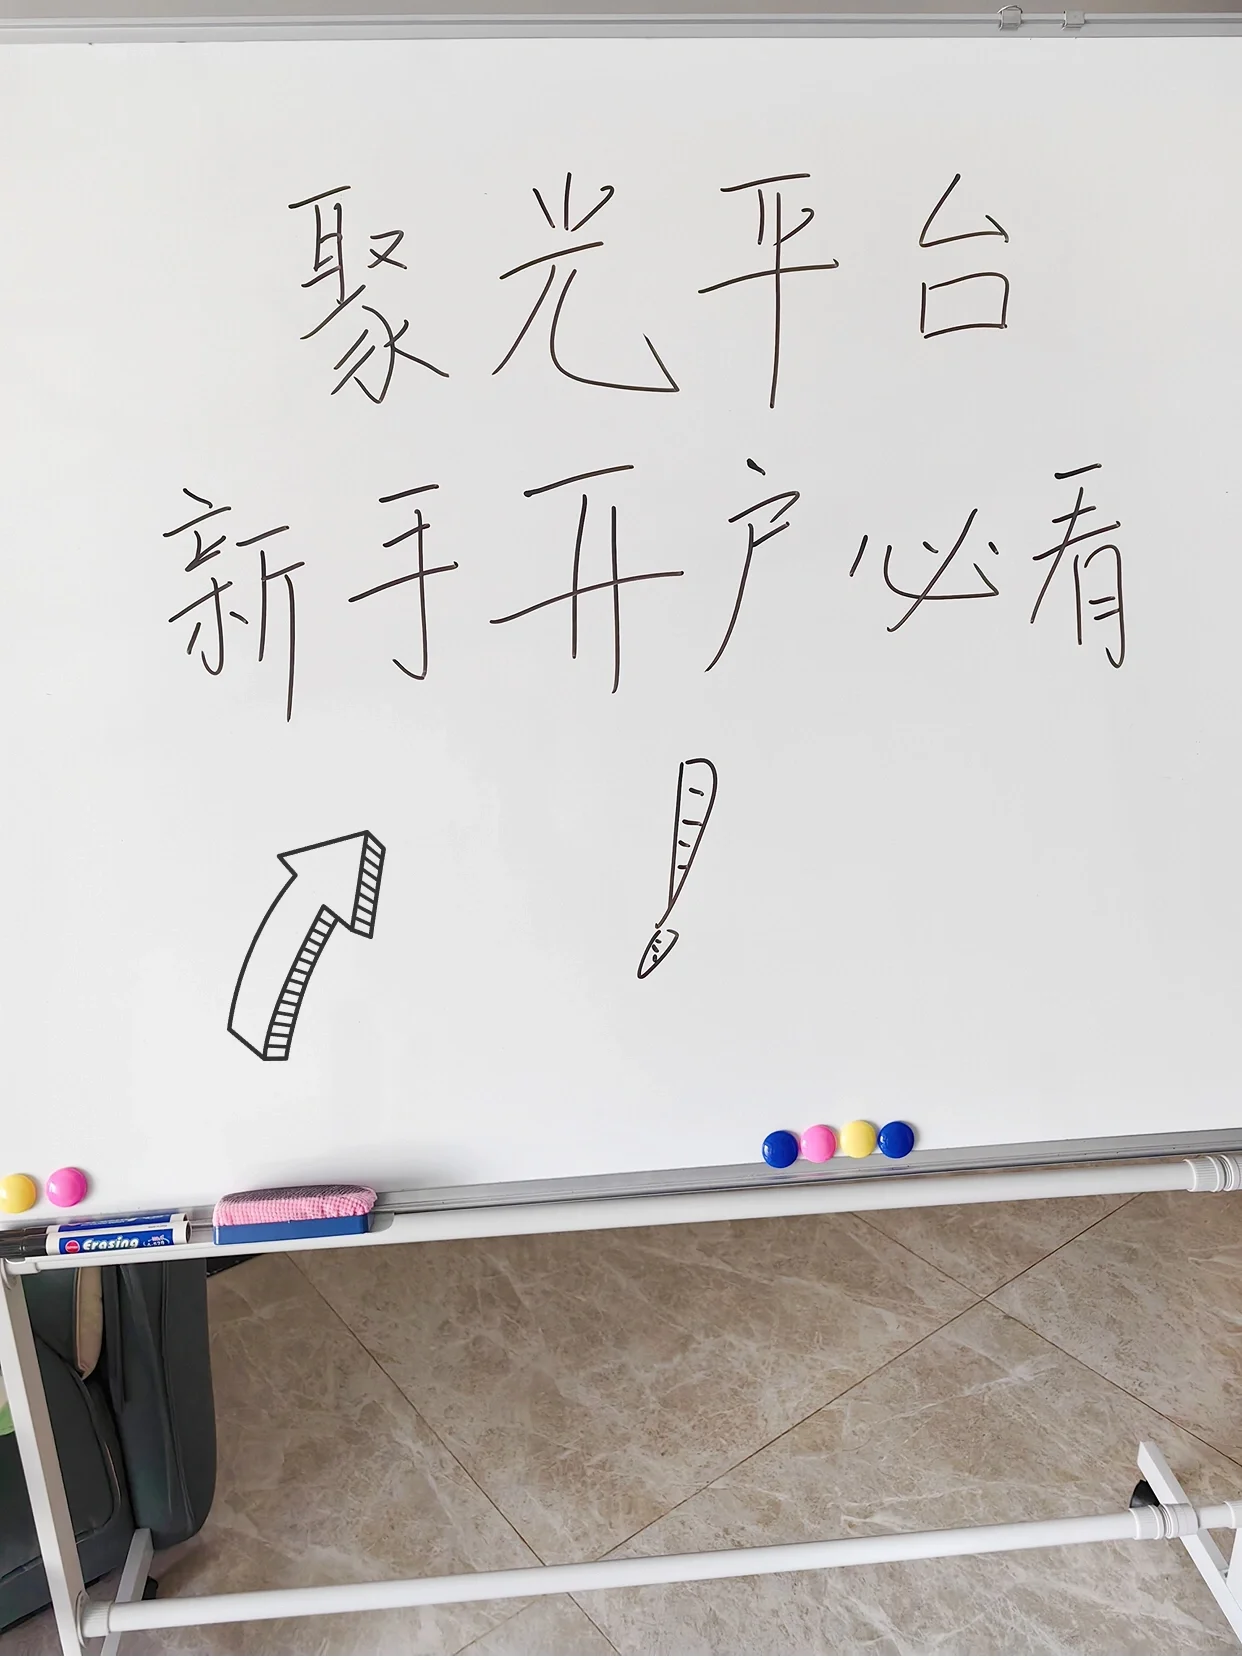 聚光平台
新手开户必看
!
Erasing